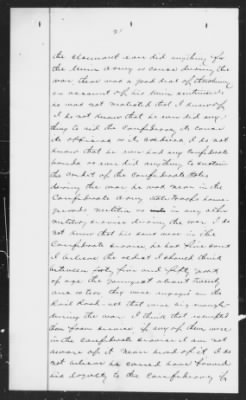 the claimant ever did anything for
the Union Army or cause during the
war there was a good deal of threatening
on account of his Union sentiments
he was not molested that I know of
I do not know that he ever did any
thing to aid the Confederacy its cause
its officers or its soldiers. I do not
know that he ever had any Confederate
bonds or ever did anything to sustain
the credit of the Confederate States
during the war he was never in the
Confederate Army State troops home
guards militia or in any other
military service during the war. I do
not know that his sons were in the
Confederate service he had five sons
I believe the oldest I should think
between forty five and fifty years
of age the youngest about twenty
and when they were engaged in the
Rail Road - not that were big enough
during the war. I think that exempted
them from service if any of them were
in the Confederate service I am not
aware of it never heard of it I do
not believe he could have proved
his loyalty to the Confederacy if